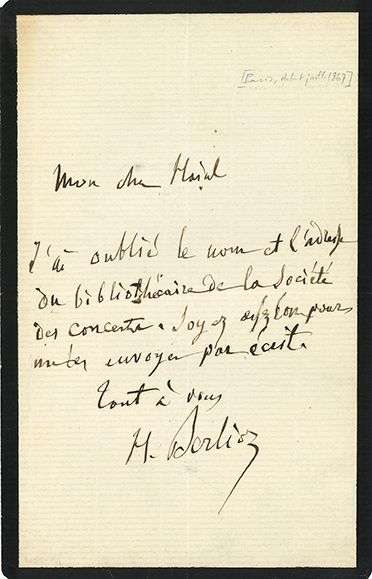 [Paris, début juill. 1867]
Mon cher Hainl
J'ai oublié le nom et l'adresse
du bibliothécaire de la Société
des concerts. Soyez assez bon pour
me les envoyer par écrit.
Tout à vous
H. Berlioz